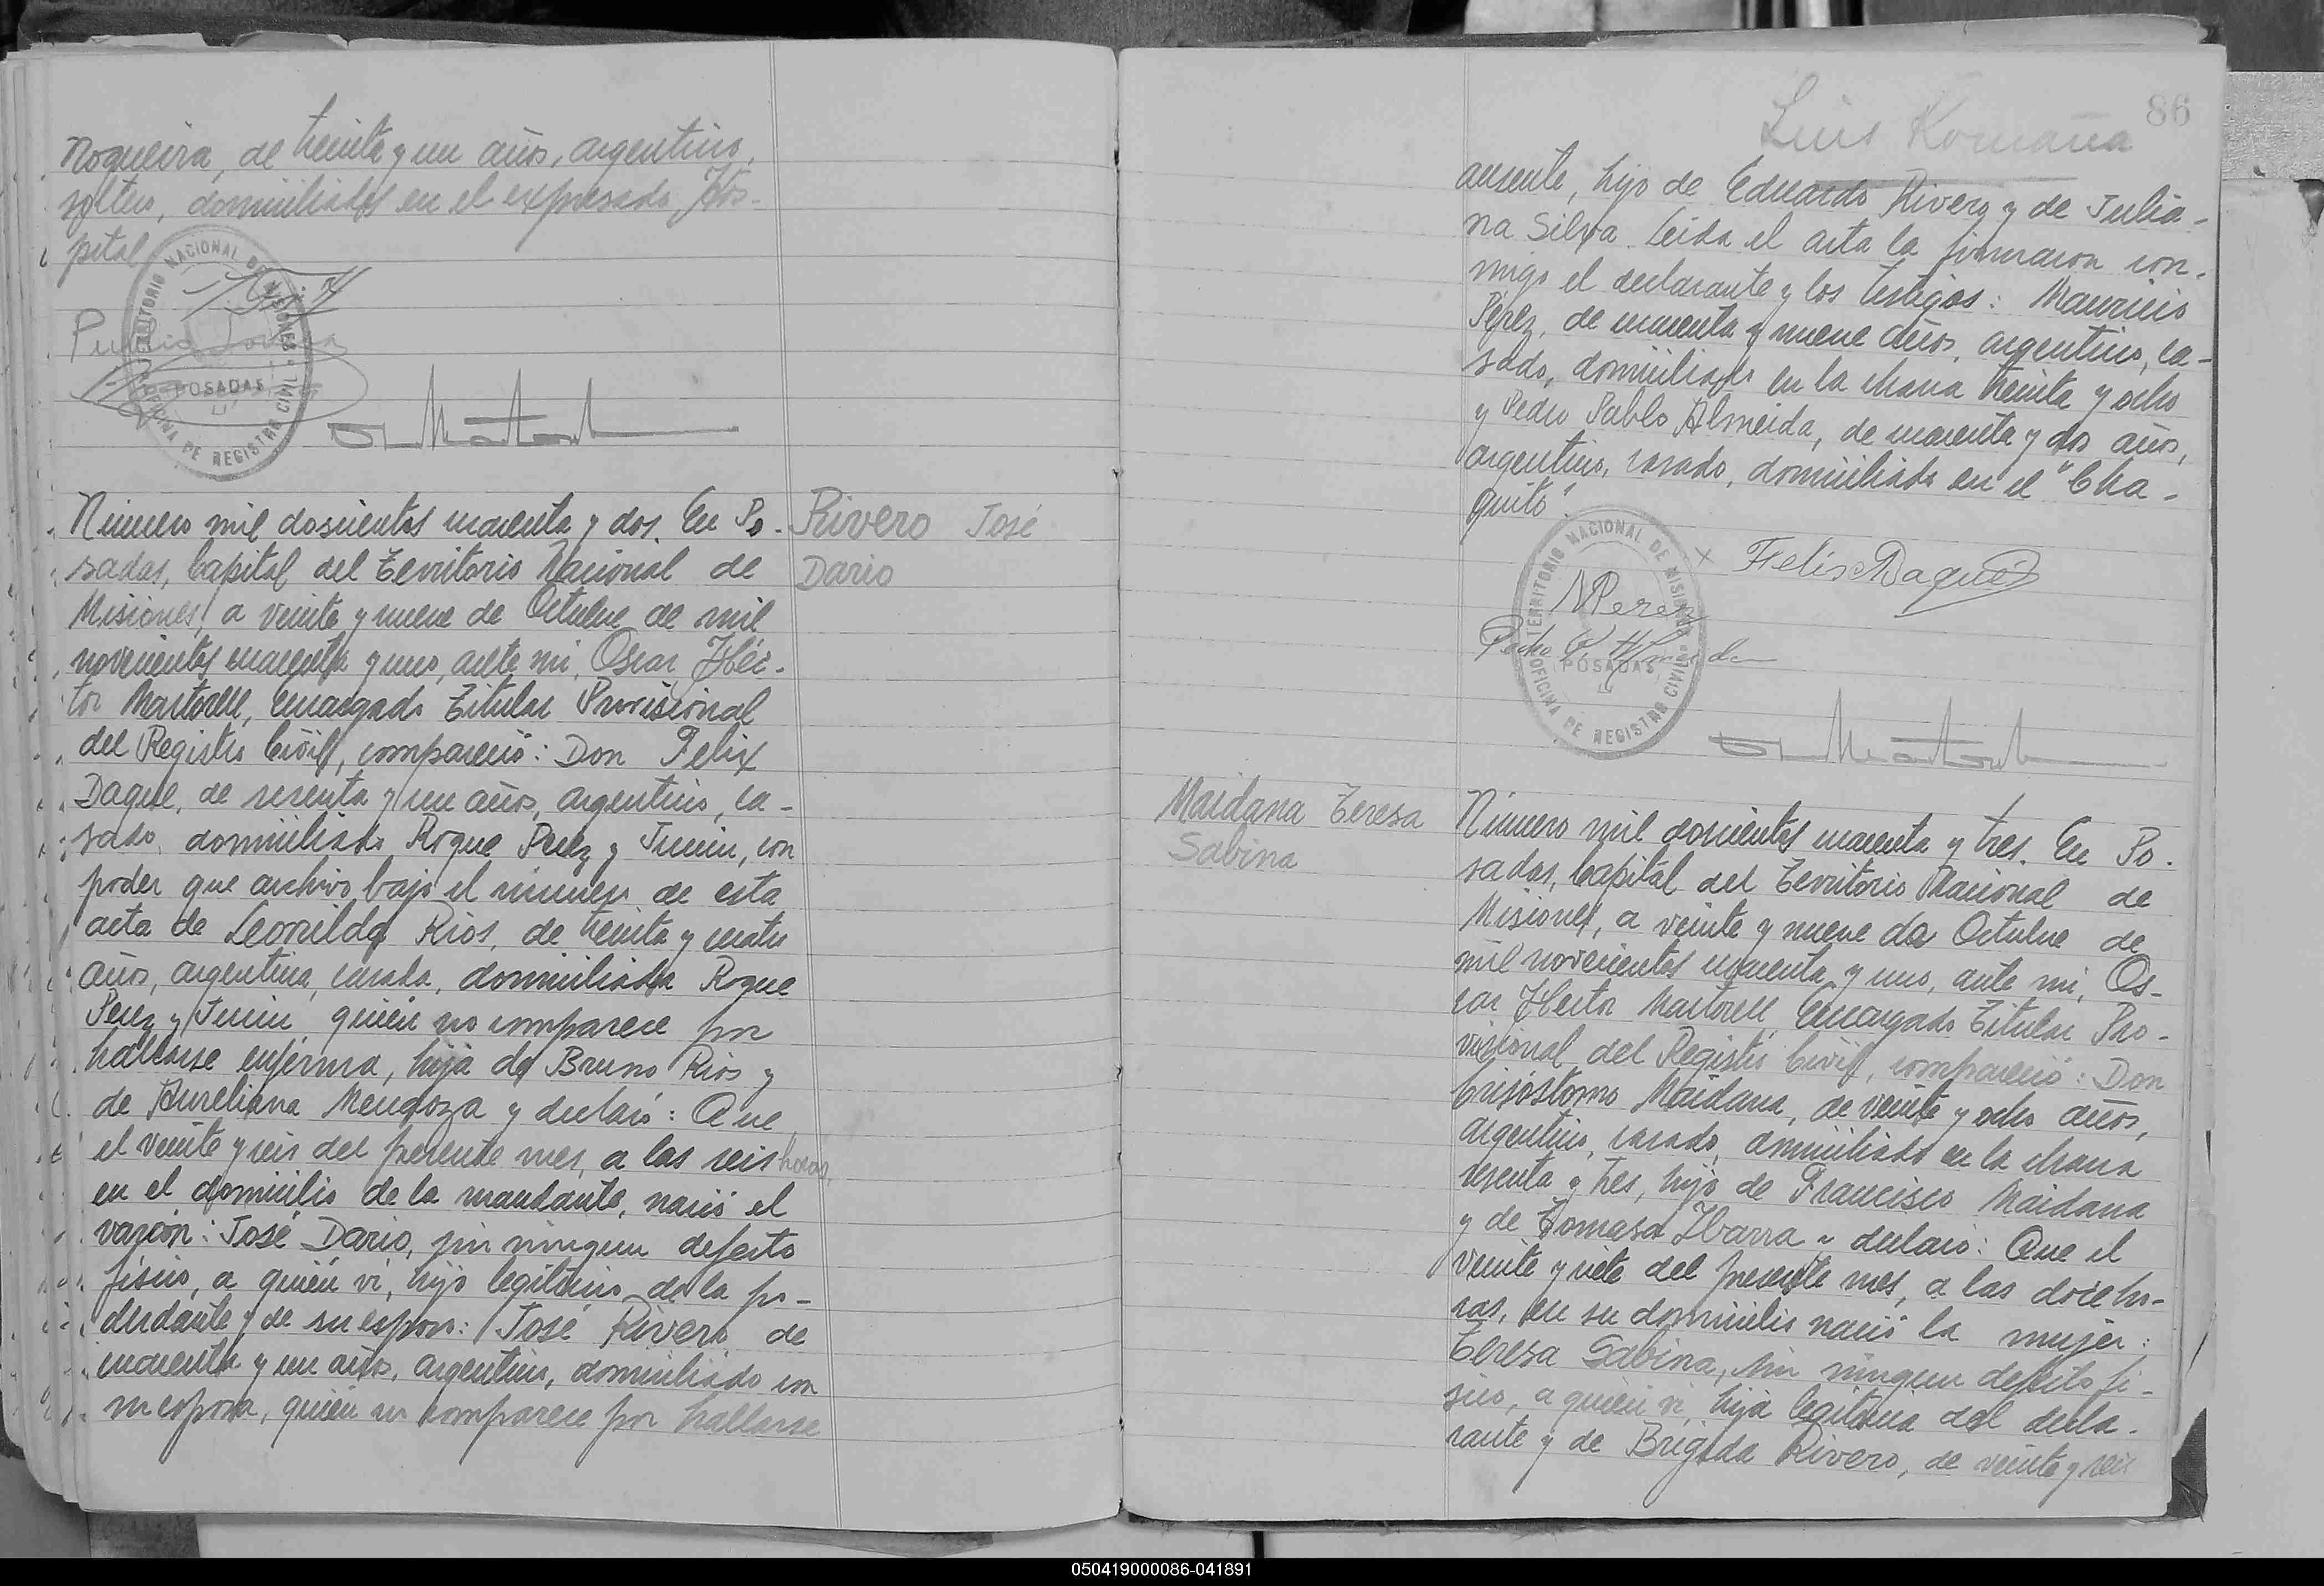 Nogueira, de treinta y un años, argentino,
soltero, domiciliados en el expresado Hos-
pital
TERRITORIO NACIONAL DE MISIONES
POSADAS
OFICINA DE REGISTRO CIVIL
Número mil doscientos cuarenta y dos. En Po-
sadas, Capital del Territorio Nacional de
Misiones, a veinte y nueve de Octubre de mil
novecientos cuarenta y uno, ante mi, Oscar Héc-
tor Martorell, Encargado Titular Provisional
del Registro Civil, compareció: Don Felix
Daque, de sesenta y un años, argentino, ca-
sado, domiciliado Roque Perez y Junin, con
poder que archivo bajo el número de esta
acta de Leonilda Rios, de treinta y cuatro
años, argentina, casada, domiciliada Roque
Perez y Junin quién no comparece por
hallarse enferma, hija de Bruno Rios y
de Aureliana Mendoza y declaró: Que
el veinte y seis del presente mes, a las seis horas,
en el domicilio de la mandante, nació el
varón: José Dario, sin ningun defecto
fisico, a quién vi, hijo legitimo de la po-
derdante y de su esposo: José Rivero de
cuarenta y un años, argentino, domiciliado con
su esposa, quién no comparece por hallarse
Rivero José
Dario
86
Luis Romaña
ausente, hijo de Eduardo Rivero y de Julia-
na Silva. Leida el acta la firmaron con-
migo el declarante y los testigos: Mauricio
Pérez, de cuarenta y nueve años, argentino, ca-
sado, domiciliado en la chacra treinta y ocho
y Pedro Pablo Almeida, de cuarenta y dos años,
argentino, casado, domiciliado en el "Cha-
quito".
x Felix Daque
MPerez
Pedro P. Almeida
TERRITORIO NACIONAL DE MISIONES
POSADAS
OFICINA DE REGISTRO CIVIL
Maidana Teresa
Sabina
Número mil doscientos cuarenta y tres. En Po-
sadas, Capital del Territorio Nacional de
Misiones, a veinte y nueve de Octubre de
mil novecientos cuarenta y uno, ante mi, Os-
car Hector Martorell Encargado Titular Pro-
visional del Registro Civil, compareció: Don
Crisóstomo Maidana, de veinte y ocho años,
argentino, casado, domiciliado en la chacra
sesenta y tres, hijo de Francisco Maidana
y de Tomasa Ibarra y declaró: Que el
veinte y siete del presente mes, a las doce ho-
ras, en su domicilio nació la mujer:
Teresa Sabina, sin ningun defecto fi-
sico, a quién vi, hija legitima del decla-
rante y de Brigida Rivero, de veinte y seis
050419000086-041891